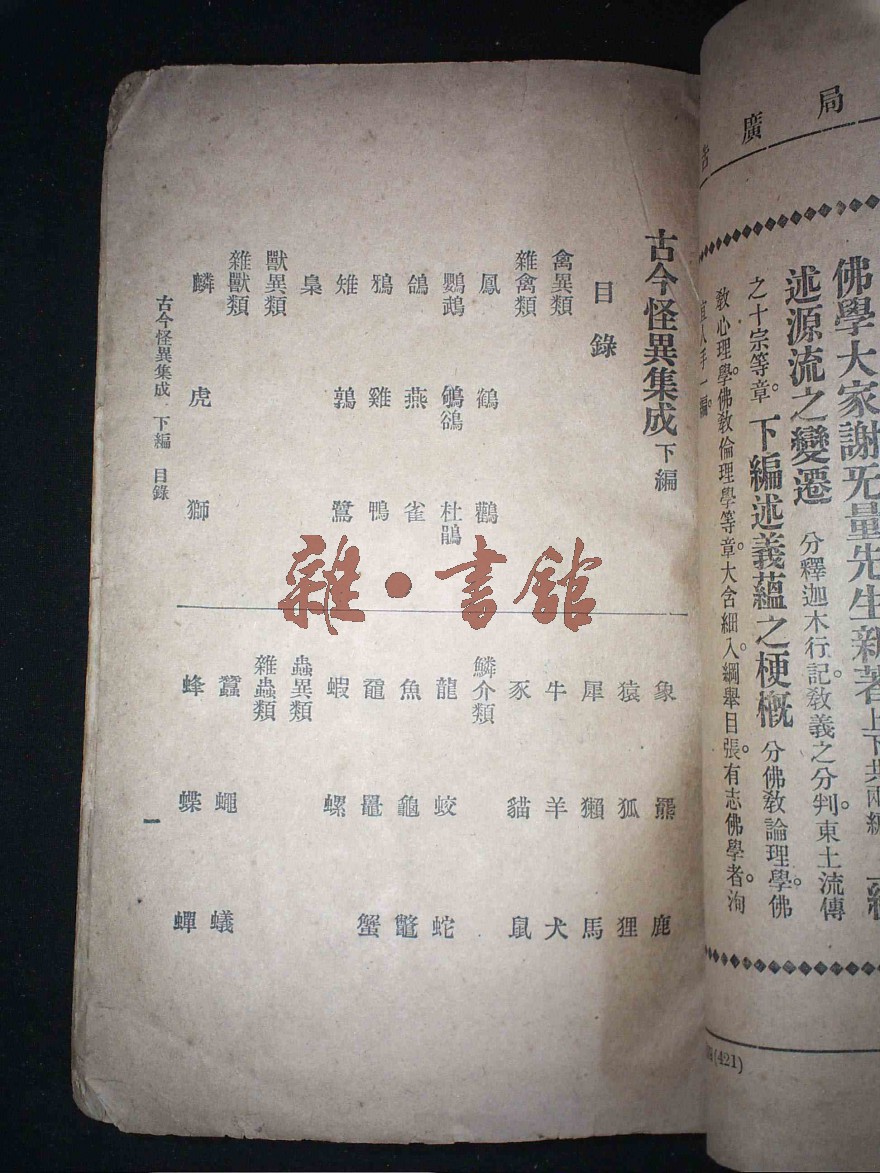 局廣告
佛學大家謝无量先生新著上下共兩編
述源流之變遷 分釋迦木行記。教義之分判。東土流傳
之十宗等章。下編述義蘊之梗概 分佛教論理學。佛
教心理學。佛教倫理學等章。大含細入。綱舉目張。有志佛學者。洵
宜人手一編。
(421)
古今怪異集成 下編
目錄
禽異類
雜禽類
鳳 鶴 鸛
鸚鵡 鴝鵒 杜鵑
鴿 燕 雀
鴉 雞 鴨
雉 鶉 鷺
梟
獸異類
雜獸類
麟 虎 獅
象 羆 鹿
猿 狐 狸
犀 獺 馬
牛 羊 犬
豕 貓 鼠
鱗介類
龍 蛟 蛇
魚 龜 鼈
黿 鼉 蟹
蝦 螺
蟲異類
雜蟲類
蠶 蠅 蟻
蜂 蝶 蟬
古今怪異集成 下編 目錄
一
雜·書館